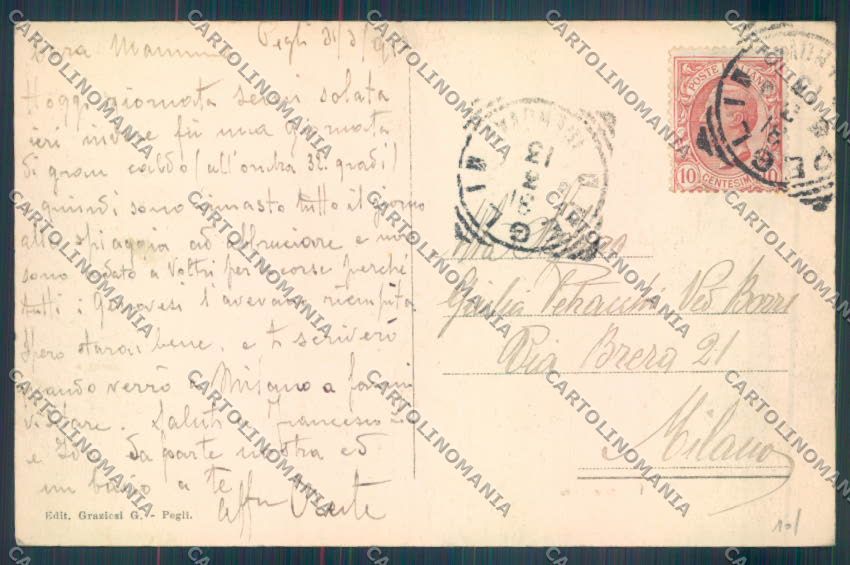 Cara Mamma Pegli
Hoggi giornata semi solata
ieri invece fu una giornata
di gran caldo (all'ombra 32 gradi)
quindi sono rimasto tutto il giorno
alla spiaggia ad abbruciare e non
sono andato a Voltri per le corse perché
tutti i Genovesi l'avevano riempita
Spero starai bene e ti scriverò
quando verrò a Milano a farmi
visitare. Saluti Francesco
e da parte nostra ed
un bacio a te
Edit. Graziosi G. - Pegli.
POSTE ITALIANE
10 CENTESIMI 10
Giulia Ved
Via Brera 21
Milano
CARTOLINOMANIA